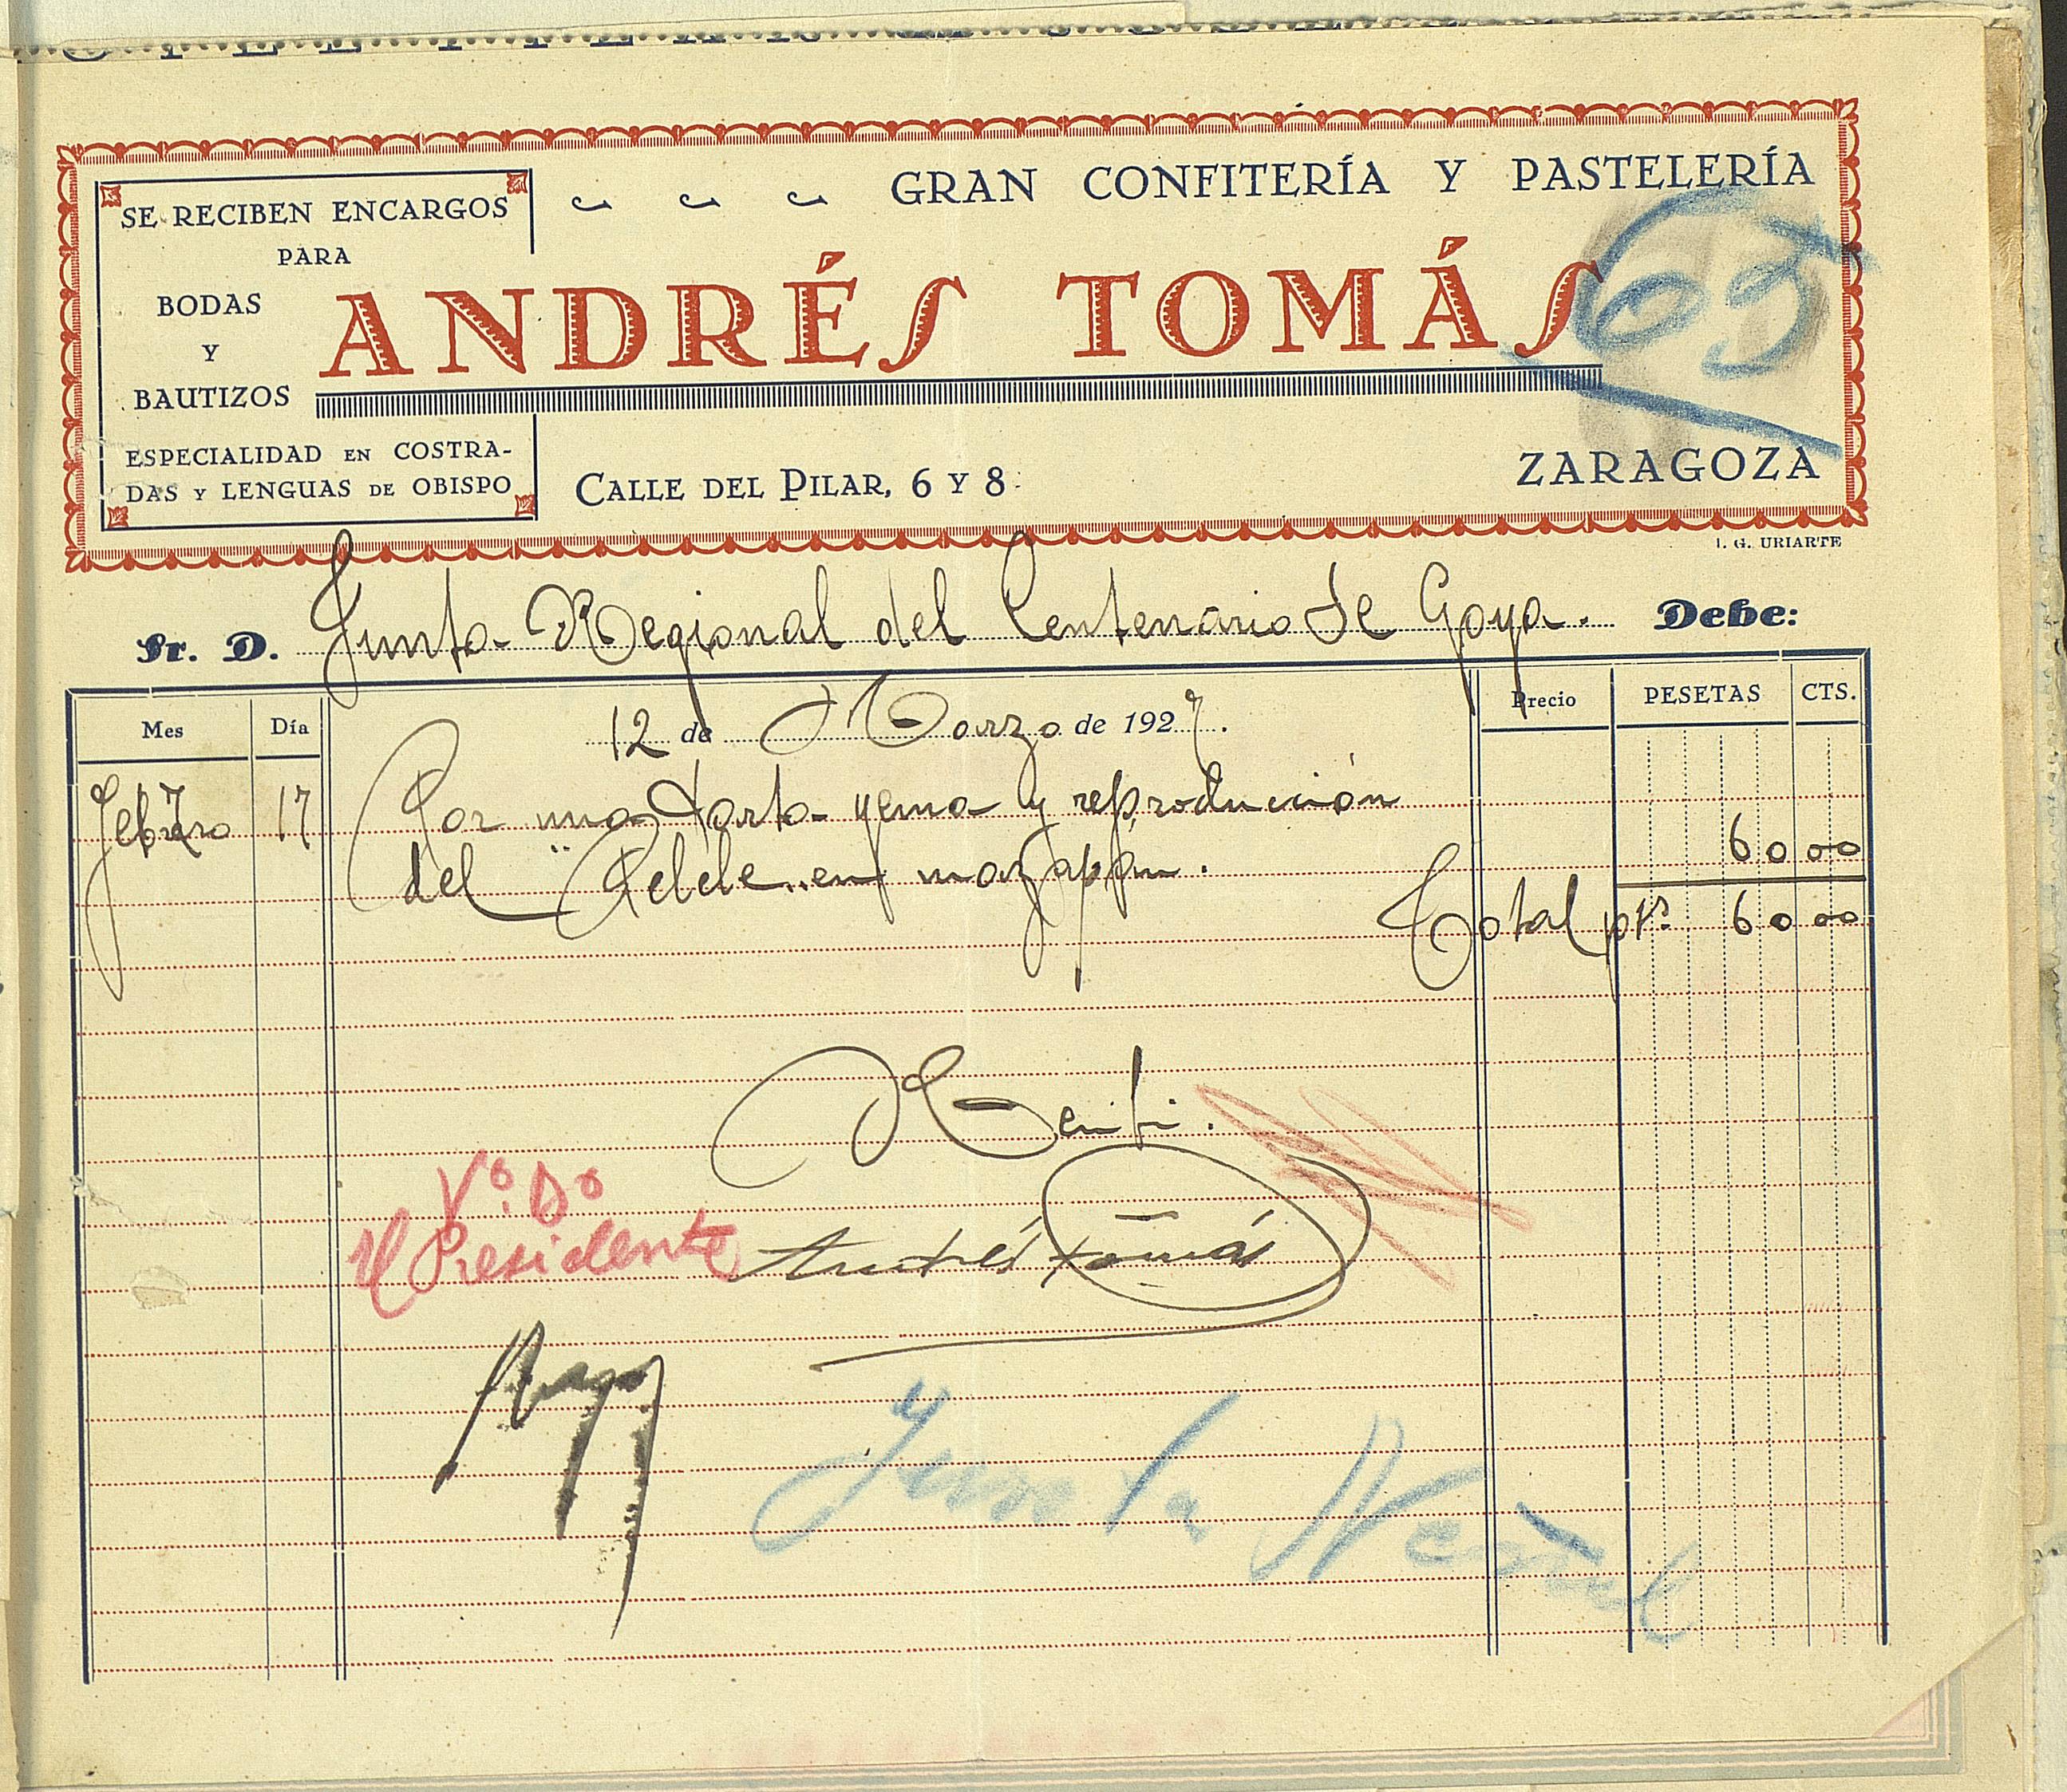 SE RECIBEN ENCARGOS
PARA
BODAS
Y
BAUTIZOS
ESPECIALIDAD EN COSTRA-
DAS Y LENGUAS DE OBISPO
GRAN CONFITERÍA Y PASTELERÍA
ANDRÉS TOMÁS
CALLE DEL PILAR, 6 Y 8
ZARAGOZA
I. G. URIARTE
Sr. D. Junta Regional del Centenario de Goya. Debe:
Mes Día 12 de Marzo de 1927. Precio PESETAS CTS.
Febrero 17 Por una Torta yema y reproducción
del "Pelele" en mazapan. 60 00
Total pts. 60 00
Recibi.
Vº. Bº
El Presidente
Andrés Tomás
Junta